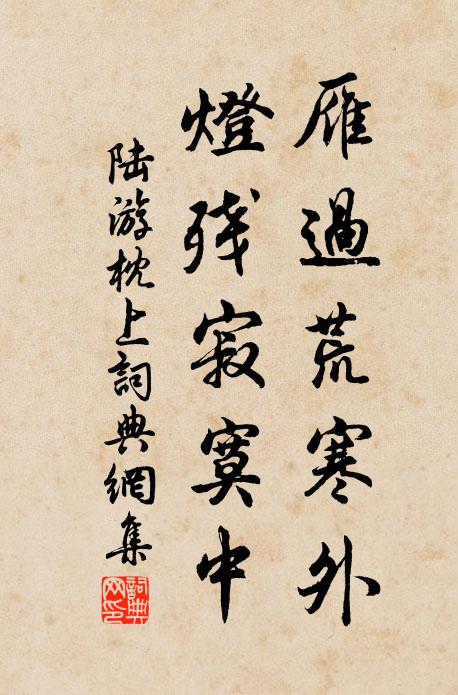 雁過荒寒外
燈殘寂寞中
陸游枕上詞典網集
詞典網印